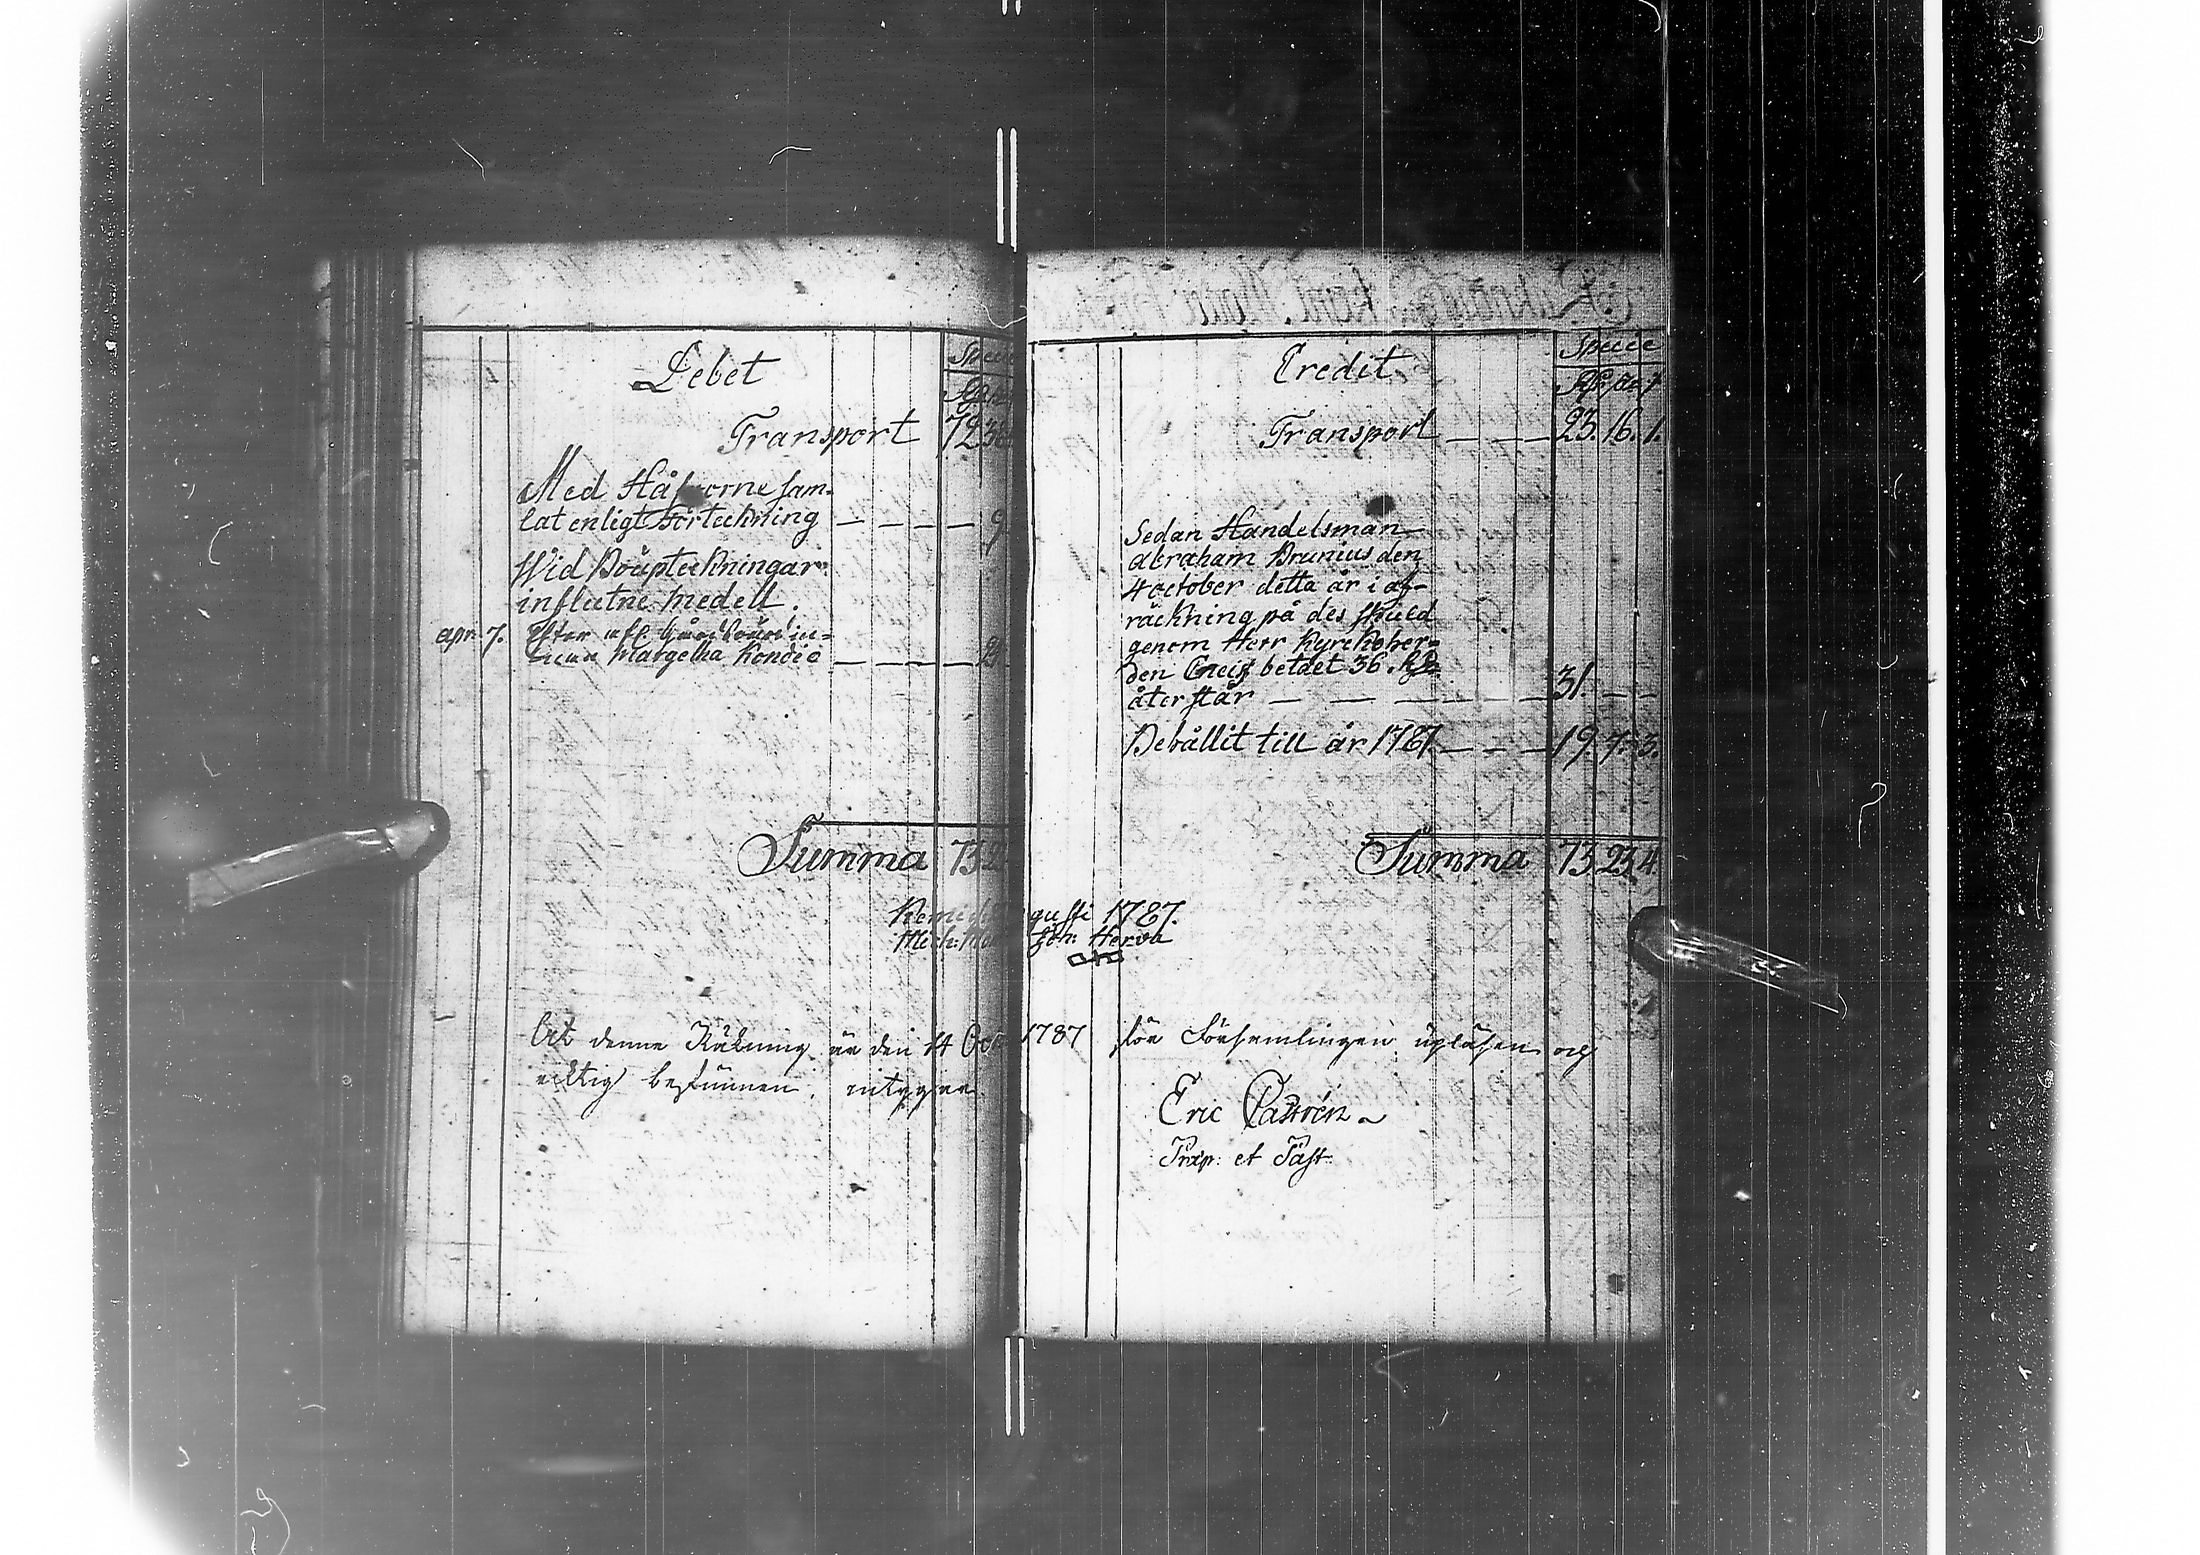 Debet
Transport 72
Med Håfvorne sam-
lat enligt förteckning — — — — 9
Wid Böupteckningar
influtne medell.
apr. 7. Efter
Margetha — — — —
Summa 73
Credit
Specie
Transport — — — 23. 16. 1.
Sedan Handelsman
Abraham Brunius den
4 october detta år i af-
räckning på des skuld
genom Herr Kyrckoher-
den betalt 36. Rd
återstår — — — — 31. — —
Behållit till år 1787. — — — 19. 7. 3.
Summa 73 23 4.
gusti 1787.
Joh: Herva
At denne Räkning är den 14 Oct 1787 för Församlingen upläsen og
richtig befunnen, intygar
Eric Castrén
Præp: et Past: